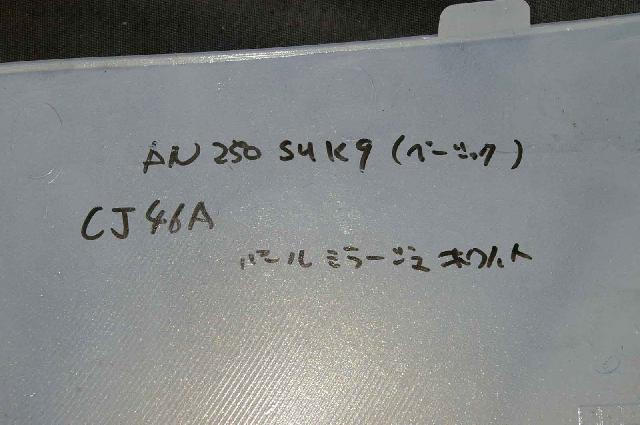 AN 250 SUK9 (ベーシック)
CJ46A
パールミラージュホワイト